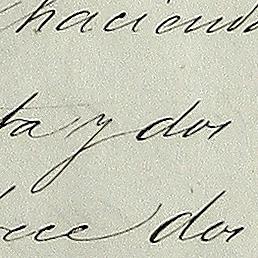 hacienda
ta y dos
dos